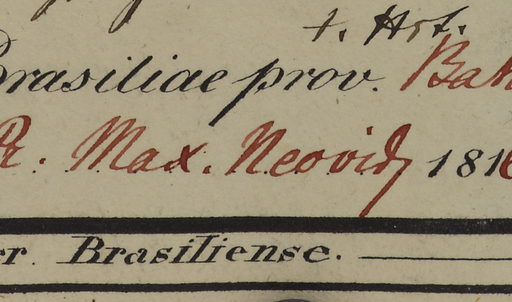 t. Hrt.
Brasiliae prov. Bah
Pr. Max. Neovid 1816
er. Brasiliense.